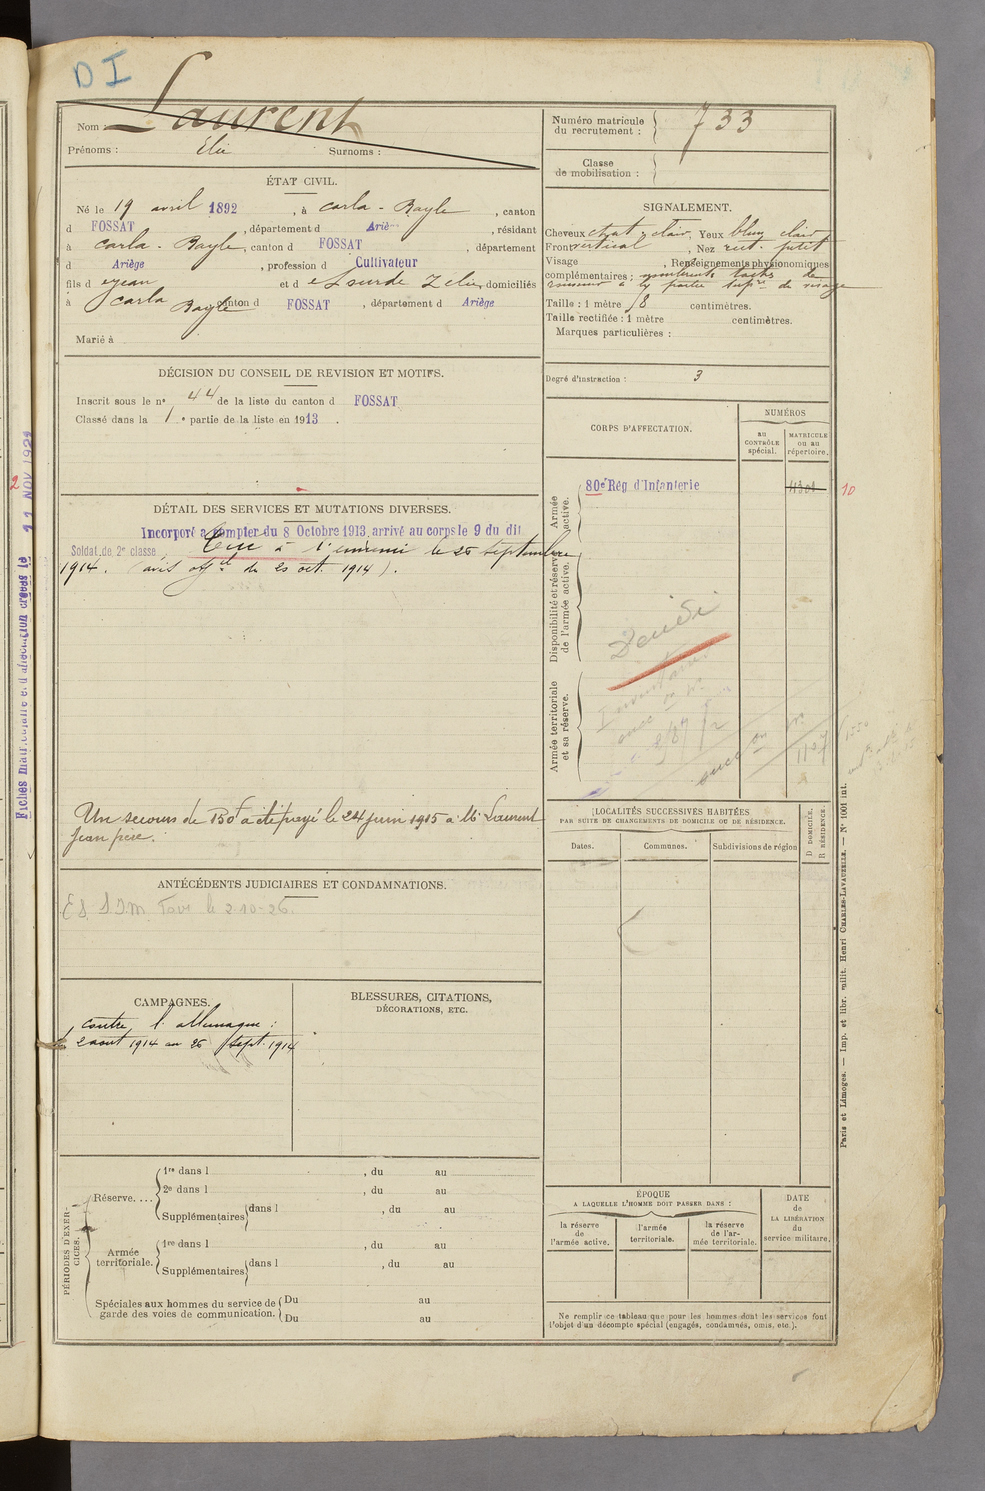 DI
Nom : Laurent
Prénoms : Élie Surnoms :
ÉTAT CIVIL.
Né le 19 avril 1892, à Carla-Bayle, canton
d FOSSAT, département d Ariè, résidant
à Carla-Bayle, canton d FOSSAT, département
d Ariège, profession d Cultivateur
fils d e Jean et d e Lourde Zélie, domiciliés
à Carla Bayle canton d FOSSAT, département d Ariège
Marié à
DÉCISION DU CONSEIL DE REVISION ET MOTIFS.
Inscrit sous le n° 44 de la liste du canton d FOSSAT
Classé dans la 1e partie de la liste en 1913.
DÉTAIL DES SERVICES ET MUTATIONS DIVERSES.
Incorporé à compter du 8 Octobre 1913, arrivé au corps le 9 du dit
Soldat de 2e classe Tué à l'ennemi le 26 septembre
1914. (avis offel du 20 oct. 1914).
Un secours de 150f a été payé le 24 juin 1915 à Mr Laurent
Jean père.
ANTÉCÉDENTS JUDICIAIRES ET CONDAMNATIONS.
le 2-10-26.
CAMPAGNES.
contre l'allemagne :
2 aout 1914 au 26 sept. 1914
BLESSURES, CITATIONS,
DÉCORATIONS, ETC.
PÉRIODES D'EXERCICES.
Réserve. ...
1re dans l , du au
2e dans l , du au
Supplémentaires dans l , du au
Armée territoriale.
1re dans l , du au
Supplémentaires dans l , du au
Spéciales aux hommes du service de
garde des voies de communication.
Du au
Du au
Numéro matricule
du recrutement : 733
Classe
de mobilisation :
SIGNALEMENT.
Cheveux chat clair, Yeux bleu clair
Front vertical, Nez rect. petit
Visage , Renseignements physionomiques
complémentaires : nombreuses taches de
rousseur à la partie supre du visage
Taille : 1 mètre 58 centimètres.
Taille rectifiée : 1 mètre centimètres.
Marques particulières :
Degré d'instruction : 3
CORPS D'AFFECTATION.
NUMÉROS
au CONTRÔLE spécial.
MATRICULE ou au répertoire.
Armée active.
80e Rég d'Infanterie
10
Disponibilité et réserve de l'armée active.
Décédé
Armée territoriale et sa réserve.
LOCALITÉS SUCCESSIVES HABITÉES
PAR SUITE DE CHANGEMENTS DE DOMICILE OU DE RÉSIDENCE.
D DOMICILE.
R RÉSIDENCE.
Dates. Communes. Subdivisions de région
ÉPOQUE
A LAQUELLE L'HOMME DOIT PASSER DANS :
la réserve de l'armée active.
l'armée territoriale.
la réserve de l'armée territoriale.
DATE de LA LIBÉRATION du service militaire.
Ne remplir ce tableau que pour les hommes dont les services font
l'objet d'un décompte spécial (engagés, condamnés, omis, etc.).
Paris et Limoges. — Imp. et libr. milit. Henri CHARLES-LAVAUZELLE. — N° 1001 int.
2
11 NOV 1921